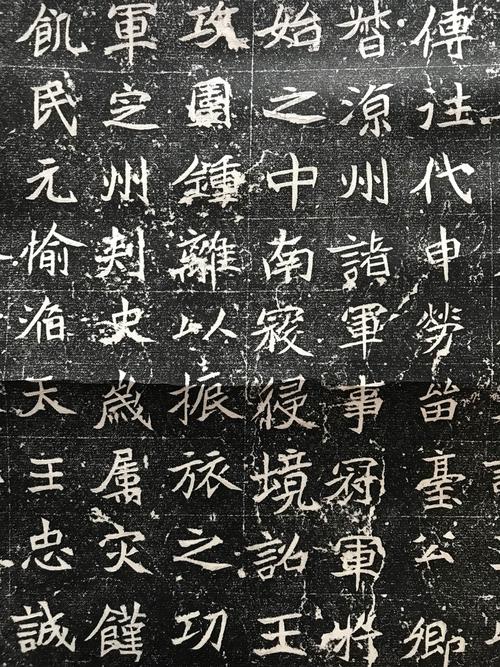 傳註代申勞留臺公卿
督涼州諸軍事冠軍將
始之中南寇侵境詔王
攻圍鍾離以振旅之功
軍定州刾史歲屬灾饉
飢民元愉滔天王忠誠